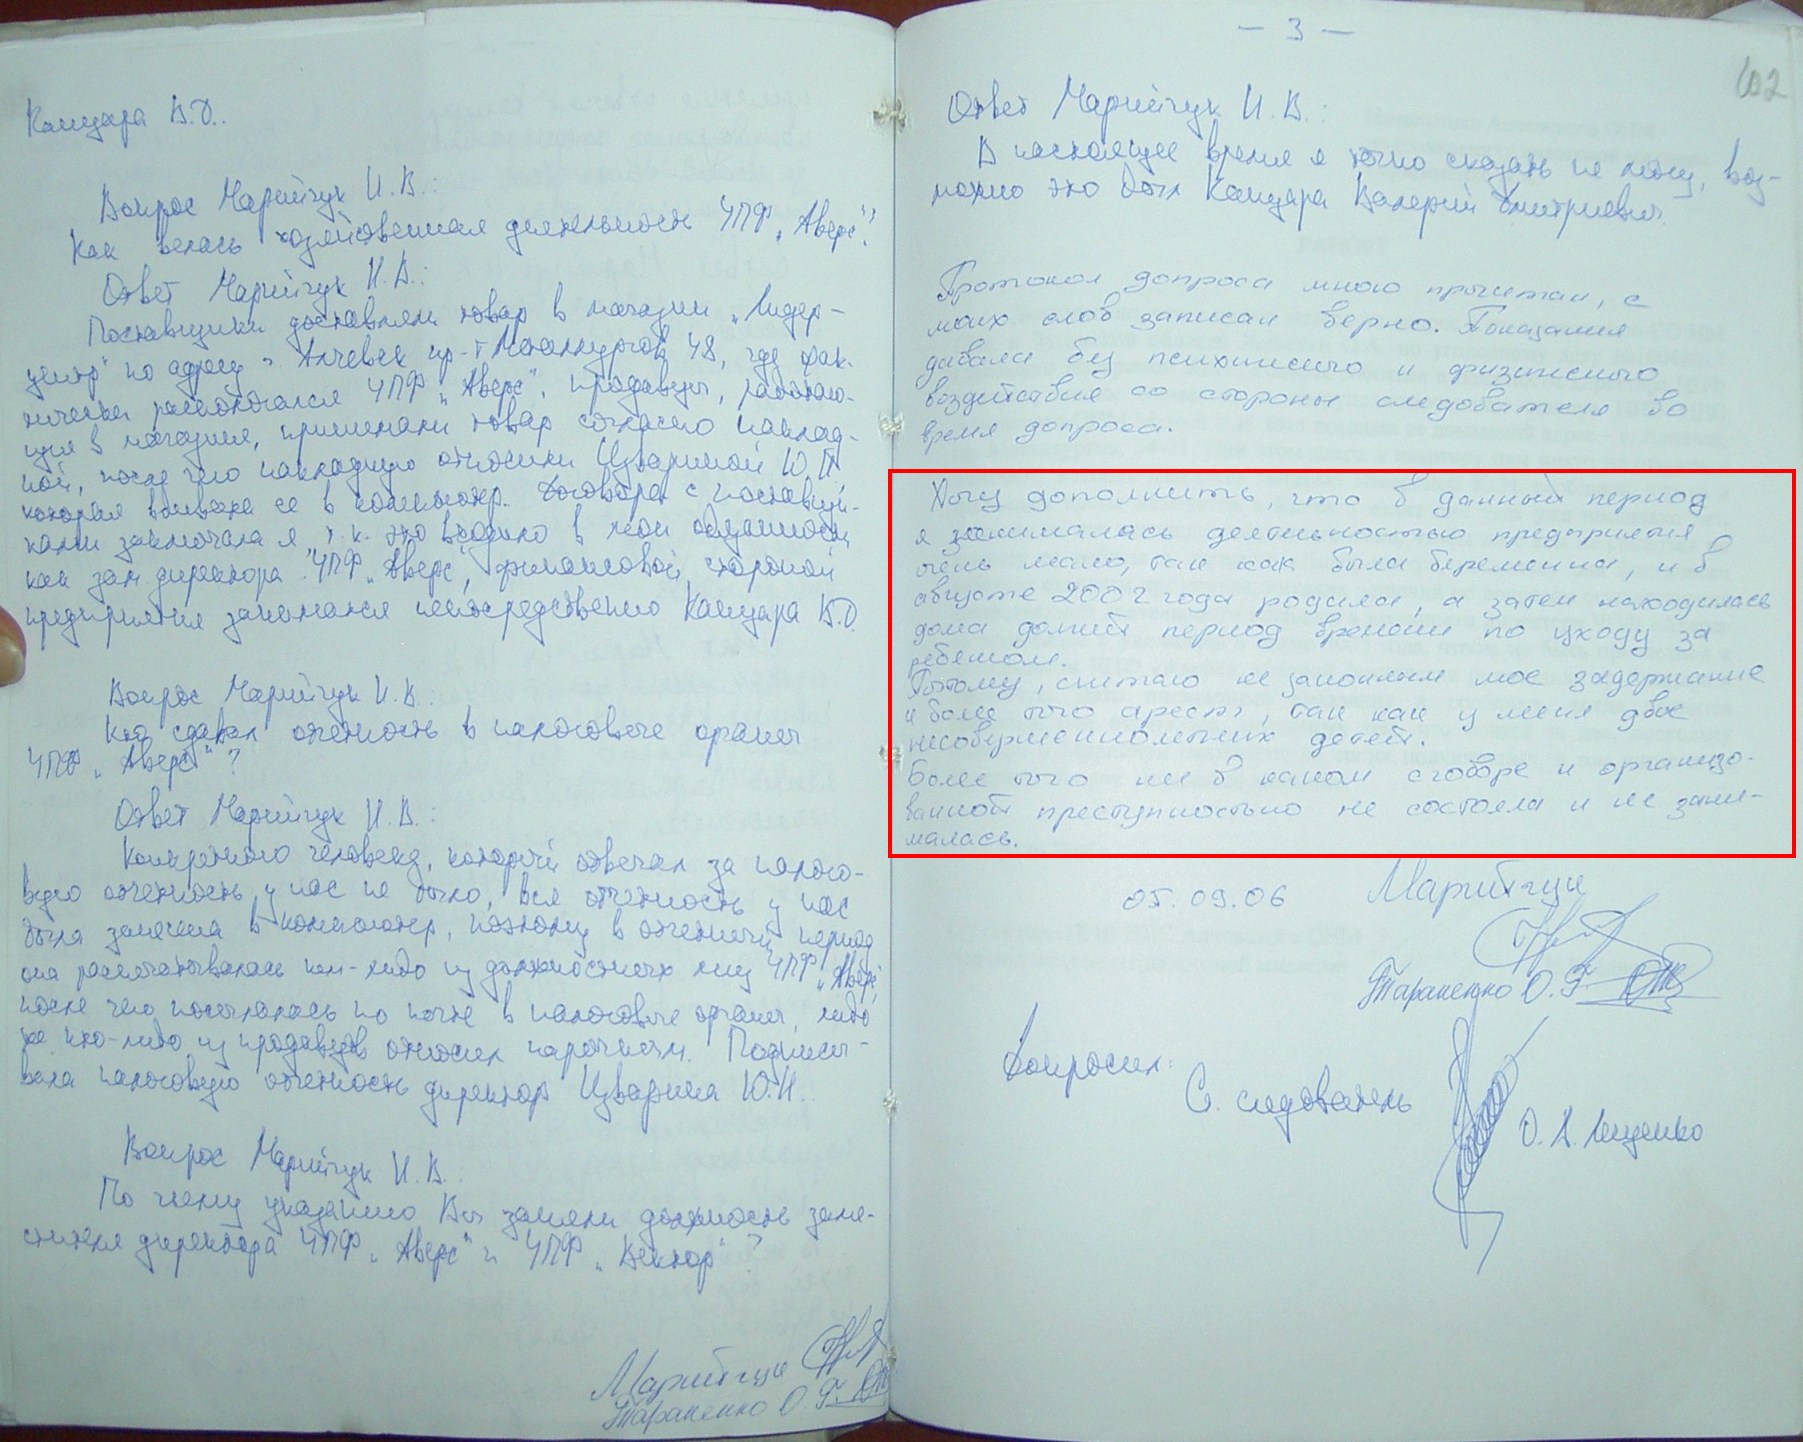 Кашара В.Д.
Вопрос Марийчук И.В.:
Как велась хозяйственная деятельность ЧПФ „Аверс"?
Ответ Марийчук И.В.:
Поставщики доставляли товар в магазин „Лидер-
центр" по адресу г. Алчевск пр-т Металлургов 48, где фак-
тически располагался ЧПФ „Аверс". Продавцы, работаю-
щие в магазине, принимали товар согласно наклад-
ной, после чего накладную относили Цвариной Ю.Н.
которая вбивала ее в компьютер. Договора с поставщи-
ками заключала я т.к. это входило в мои обязанности
как зам. директора ЧПФ „Аверс", финансовой стороной
предприятия занимался непосредственно Кашара В.Д.
Вопрос Марийчук И.В.:
Кто сдавал отчетность в налоговые органы
ЧПФ „Аверс"?
Ответ Марийчук И.В.:
Конкретного человека, который отвечал за налого-
вую отчетность у нас не было, вся отчетность у нас
была занесена в компьютер, поэтому в отчетный период
она распечатывалась кем-либо из должностных лиц ЧПФ „Аверс"
после чего посылалась по почте в налоговые органы, либо
же кто-либо из продавцов относил нарочным. Подписы-
вала налоговую отчетность директор Цварина Ю.Н.
Вопрос Марийчук И.В.:
По чьему указанию Вы заняли должность заме-
стителя директора ЧПФ „Аверс" и ЧПФ „Вектор"?
Марийчук
Тараненко О.Г.
— 3 —
102
Ответ Марийчук И.В.:
В настоящее время я точно сказать не могу, воз-
можно это был Кашара Валерий Дмитриевич.
Протокол допроса мною прочитан, с
моих слов записан верно. Показания
давала без психического и физического
воздействия со стороны следователя во
время допроса.
Хочу дополнить, что в данный период
я занималась деятельностью предприятия
очень мало, так как была беременна, и в
августе 2002 года родила, а затем находилась
дома долгий период времени по уходу за
ребенком.
Потому, считаю не законным мое задержание
и более того арест, так как у меня двое
несовершеннолетних детей.
Более того ни в каком сговоре и организо-
ванной преступностью не состояла и не зани-
малась.
05.09.06 Марийчук
Тараненко О.Г.
Допросил:
Ст. следователь О.А. Лещенко